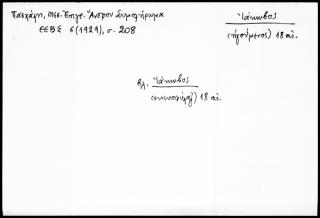 Ἰάκωβος
(ἡγούμενος) 18 αἰ.
Πασχάλη, Μεσ.
Ἄνδρου Συμπλήρωμα
ΕΕΒΣ 6 (1929), σ. 208
βλ. Ἰάκωβος
18 αἰ.